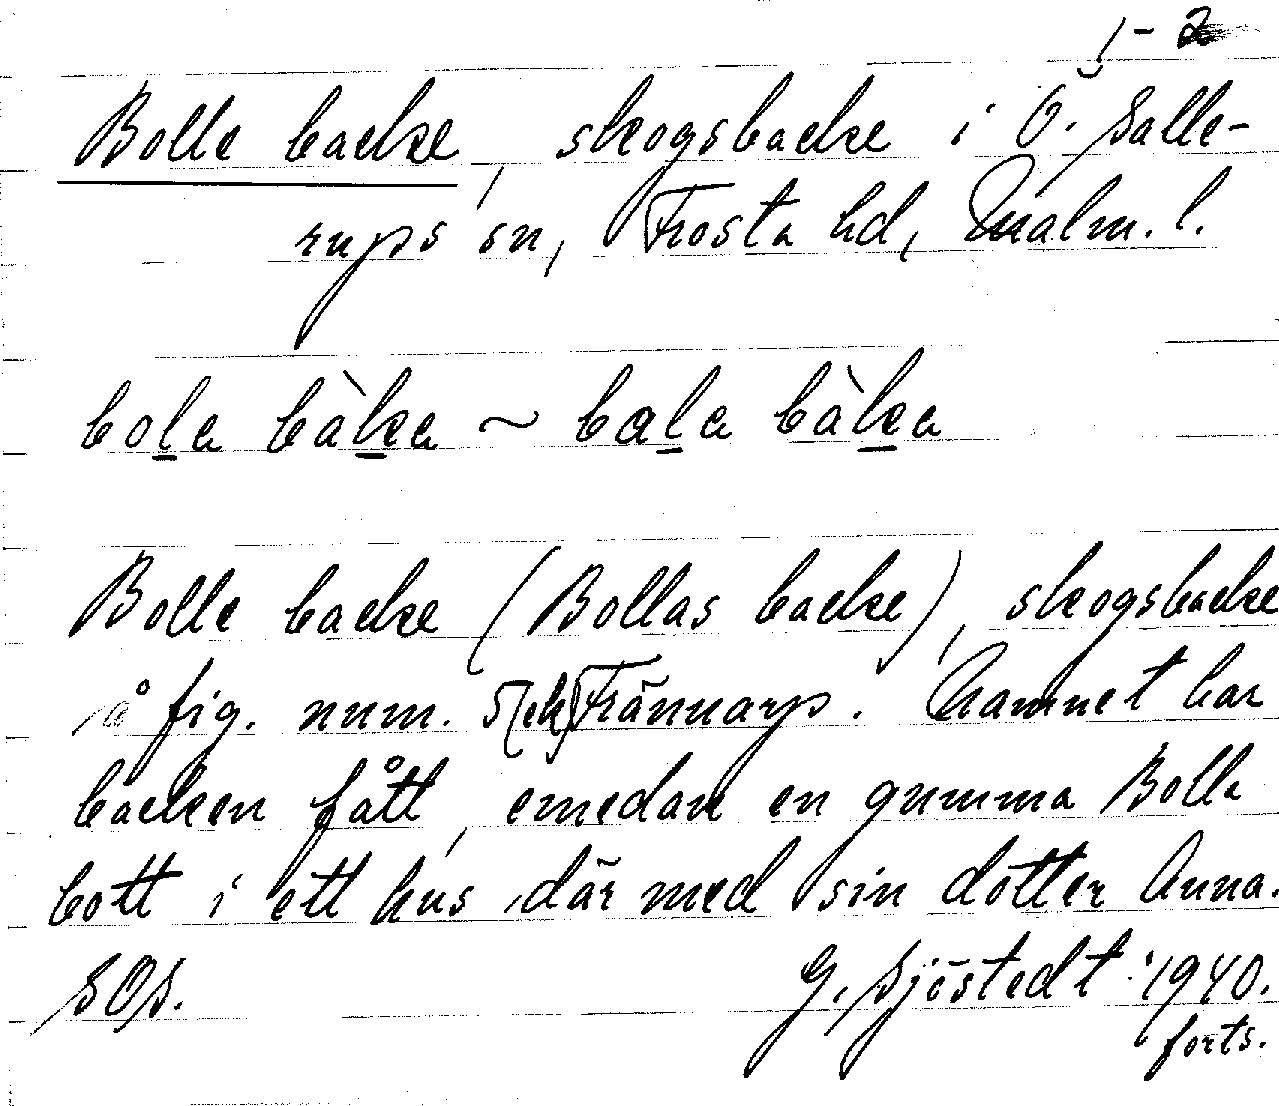 1-2
Bolle backe, skogsbacke i Ö. Salle-
rups sn, Frosta hd, Malm. l.
bola bàka ~ bala bàka
Bolle backe (Bollas backe), skogsbacke
å fig. num. 5 (ek) Frännarp. Namnet har
backen fått, emedan en gumma Bolla
bott i ett hus där med sin dotter Anna.
SOS. G. Sjöstedt 1940.
forts.